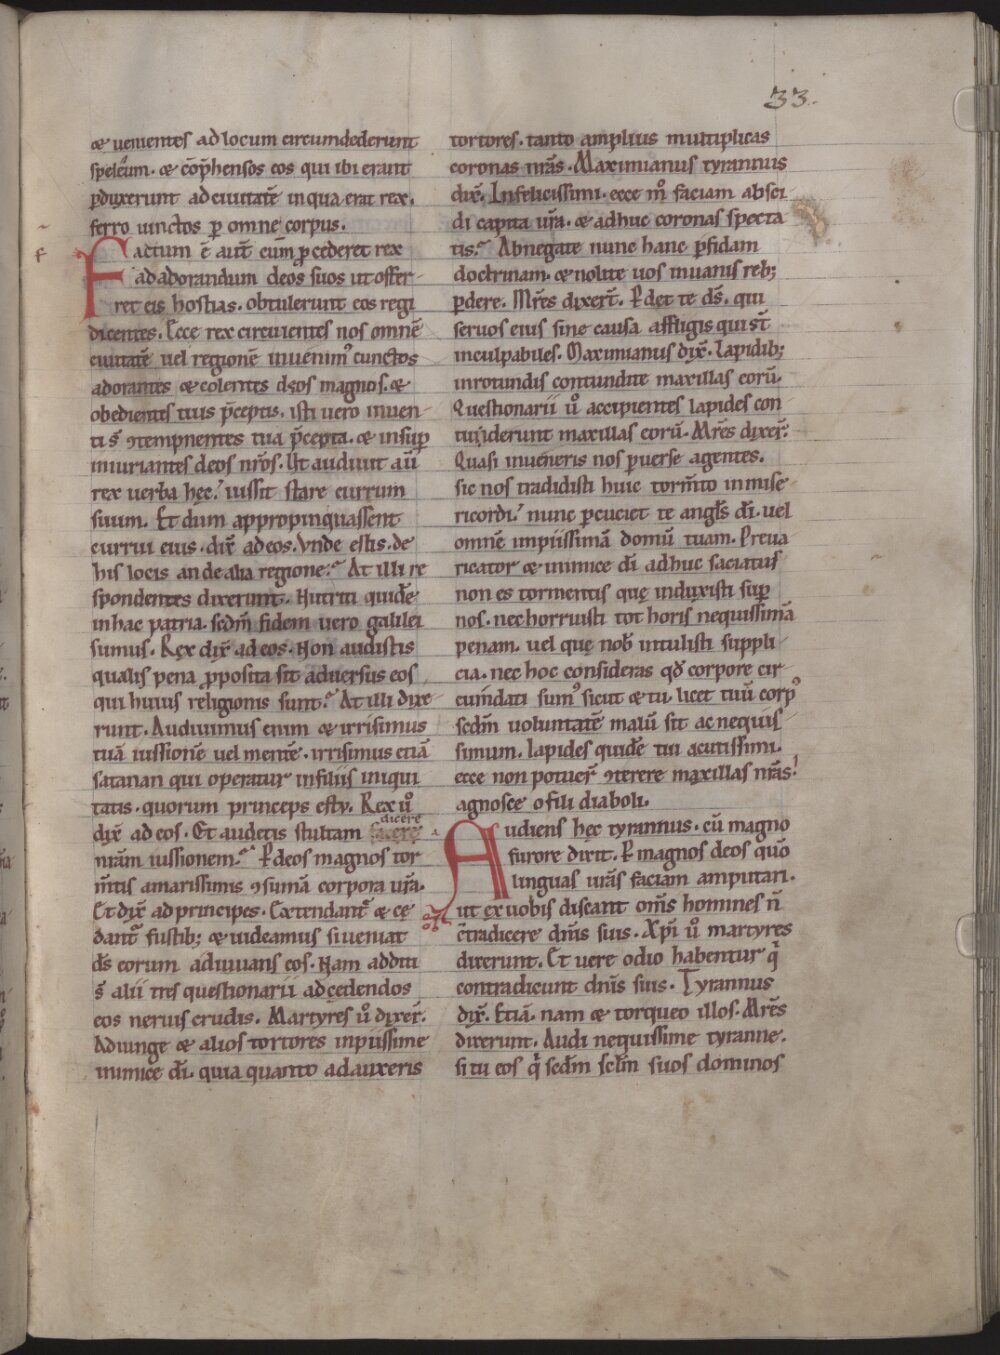 33.
& uenientes ad locum circumdederunt
speleum. & cōp̄hensos eos qui ibi erant
ꝑduxerunt ad ciuitatē in qua erat rex.
ferro uinctos ꝑ omne corpus.
f
Factum ē aut̄ cum ꝓcederet rex
ad adorandum deos suos ut offer-
ret eis hostias. obtulerunt eos regi
dicentes. Ecce rex circuientes nos omnē
ciuitatē uel regionē inuenimꝰ cunctos
adorantes & colentes deos magnos. &
obedientes tuis p̄ceptis. isti uero inuen-
ti s̄ ꝯtempnentes tua p̄cepta. & insuꝑ
iniuriantes deos nr̄os. Ut audiuit aū
rex uerba hęc. iussit stare currum
suum. Et dum appropinquassent
currui eius. dix̄ ad eos. Vnde estis. de
his locis an de alia regione? At illi re
spondentes dixerunt. Nutriti quidē
in hac patria. sedm̄ fidem uero galilei
sumus. Rex dix̄ ad eos. Non audistis
qualis pena ꝓposita sit aduersus eos
qui huius religionis sunt? At illi dixe-
runt. Audiuimus enim & irrisimus
tuā iussionē uel mentē. irrisimus etiā
satanan qui operatur in filiis iniqui
tatis. quorum princeps es ty. Rex ū̊
dicere
dix̄ ad eos. Et audetis stultam
nrām iussionem? P̱ deos magnos tor
m̄tis amarissimis ꝯsumā corpora ur̄a.
Et dix̄ ad principes. Extendant᷑ & cę
dant᷑ fustib; & uideamus si ueniat
ds̄ eorum adiuuans eos. Nam additi
s̄ alii tres questionarii ad cedendos
eos neruis crudis. Martyres ū̊ dixer̄.
Adiunge & alios tortores inpiissime
inimice dī. quia quanto adauxeris
tortores. tanto amplius multiplicas
coronas nr̄as. Maximianus tyrannus
dix̄. Infelicissimi. ecce m̊ faciam absci
di capita ur̄a. & adhuc coronas specta
tis? Abnegate nunc hanc ꝑfidam
doctrinam. & nolite uos in uanis reb;
ꝑdere. Mr̄es dixert̄. Ꝑdet te ds̄. qui
seruos eius sine causa affligis qui st̄
inculpabiles. Maximianus dix̄. Lapidib;
in rotundis contundite maxillas eorū.
Questionarii ū̊ accipientes lapides con
tunderunt maxillas eorū. Mr̄es dixer̄.
Quasi inueneris nos ꝑuerse agentes.
sic nos tradidisti huic torm̄to in mise-
ricordi. nunc ꝑcuciet te angls̄ dī. uel
omnē impiissimā domū tuam. Preua
ricator & inimice dī adhuc saciatus
non es tormentis que induxisti suꝑ
nos. nec horruisti tot horis nequissimā
penam. uel que nob̄ intulisti suppli-
cia. nec hoc consideras qd̄ corpore cir-
cum̄dati sumꝰ sicut & tu. licet tuū corpꝰ
sedm̄ uoluntatē malū sit ac nequis-
simum. Lapides quidē tui acutissimi.
ecce non potuer̄ ꝯterere maxillas nr̄as.
agnosce o fili diaboli.
Audiens hec tyrannus. cū magno
furore dixit. Ꝑ magnos deos quō
linguas ur̄as faciam amputari.
ut ex uobis discant om̄s homines n̄
c̄tradicere dn̄is suis. Xp̄i ū̊ martyres
dixerunt. Et uere odio habentur q̄
contradicunt dn̄is suis. Tyrannus
dix̄. Etiā. nam & torqueo illos. Mr̄es
dixerunt. Audi nequissime tyranne.
si tu eos q̄ sedm̄ sclm̄ suos dominos